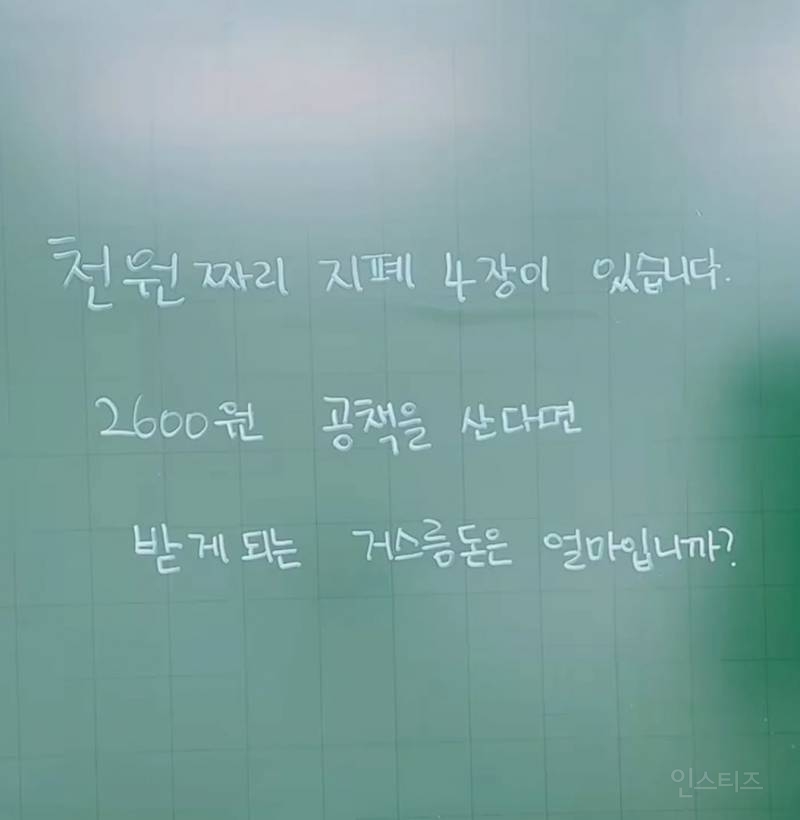 천원 짜리 지폐 4장이 있습니다.
2600원 공책을 산다면
받게 되는 거스름돈은 얼마입니까?
인스티즈